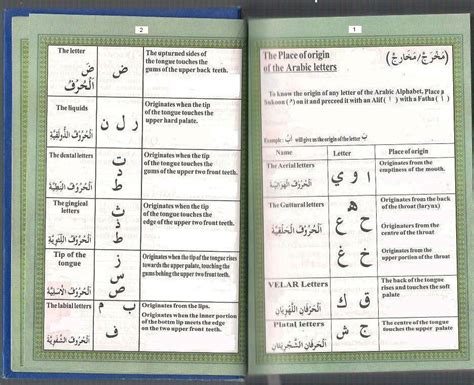 1
The Place of origin
of the Arabic letters
(مَخْرَجٌ/ مَخَارِجُ)
To know the origin of any letter of the Arabic Alphabet, Place a
Sukoon (ْ) on it and preceed it with an Alif ( ا ) with a Fatha (َ)
Example : أَبْ will give us the origin of the letter بْ
Name Letter Place of origin
The Aerial letters
اَلْحُرُوْفُ الْهَوَائِيَّةُ
ا و ي
Originates from the
emptiness of the mouth.
The Guttural letters
اَلْحُرُوْفُ الْحَلْقِيَّةُ
ء ه
Originates from the back
of the throat (larynx)
ع ح
Originates from the
centre of the throat
غ خ
Originates from the
upper portion of the throat
VELAR Letters
اَلْحَرْفَانِ اللَّهْوِيَانِ
ق ك
The back of the tongue
rises and touches the soft
palate
Platal letters
اَلْحَرْفَانِ الشَّجْرِيَتَانِ
ج ش
The centre of the tongue
touches the upper palate
2
The letter
ضَ
اَلْحُرُفُ
ض
The upturned sides of
the tongue touches the
gums of the upper back teeth.
The liquids
اَلْحُرُوْفُ الذَّوْلَقِيَّةُ
ر ل ن
Originates when the tip
of the tongue touches the
upper hard palate.
The dental letters
اَلْحُرُوْفُ النِّطْعِيَّةُ
ت
د
ط
Originates when the tip
of the tongue touches the
gums of the upper two front teeth.
The gingical
letters
اَلْحُرُوْفُ اللِّثَوِيَّةُ
ث
ذ
ظ
Originates when the tip
of the tongue touches the
edge of the upper two front teeth.
Tip of the
tongue
اَلْحُرُوْفُ الْاَسَلِيَّةُ
ز
س
ص
Originates when the tip of the tongue rises
towards the upper palate, touching the
gums behing the upper two front teeth.
The labial letters
اَلْحُرُوْفُ الشَّفَوِيَّةُ
ب م
Originates from the lips.
ف
Originates when the inner portion
of the bottm lip meets the edge
on the two upper front teeth.